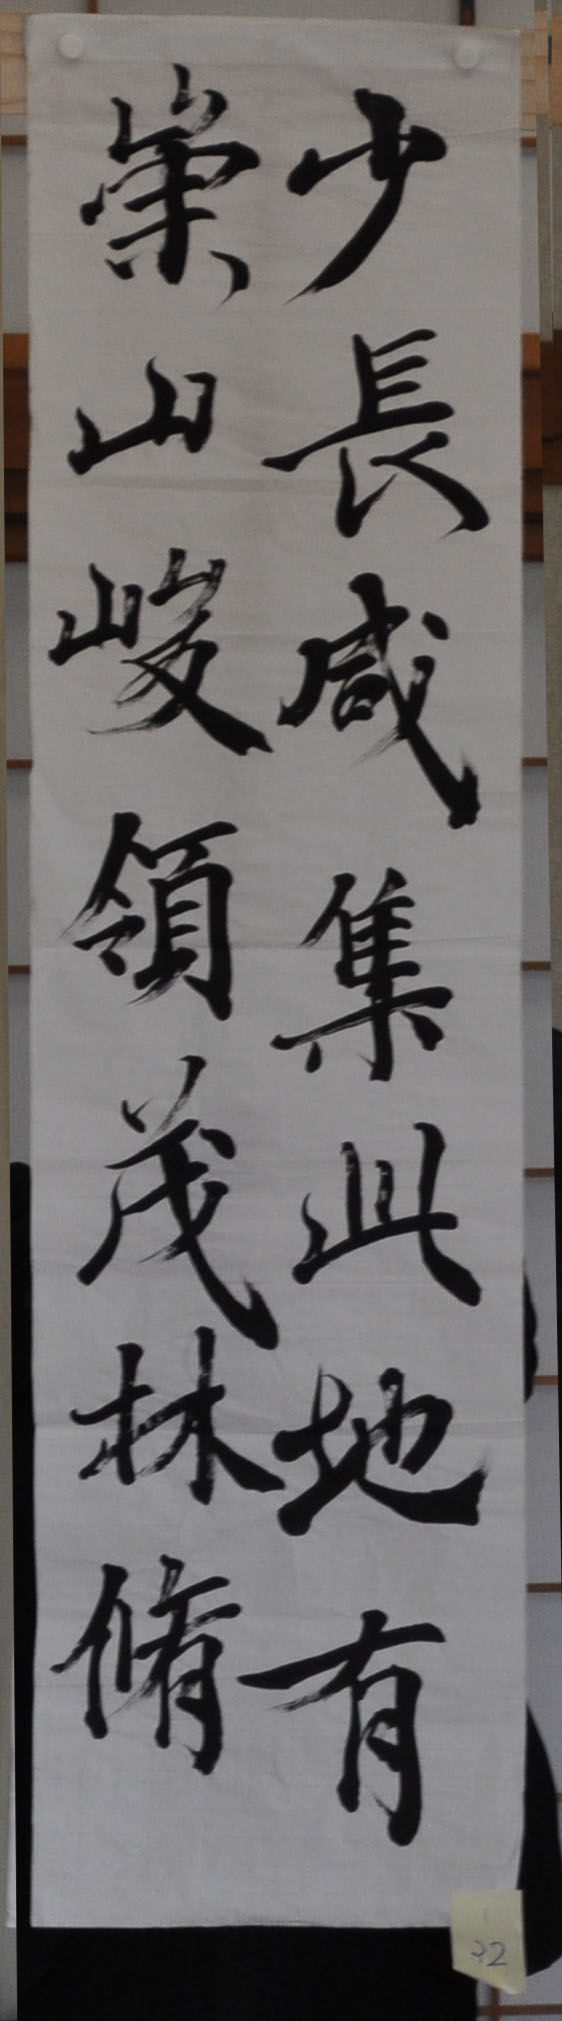 少長咸集此地有
崇山峻領茂林脩
32